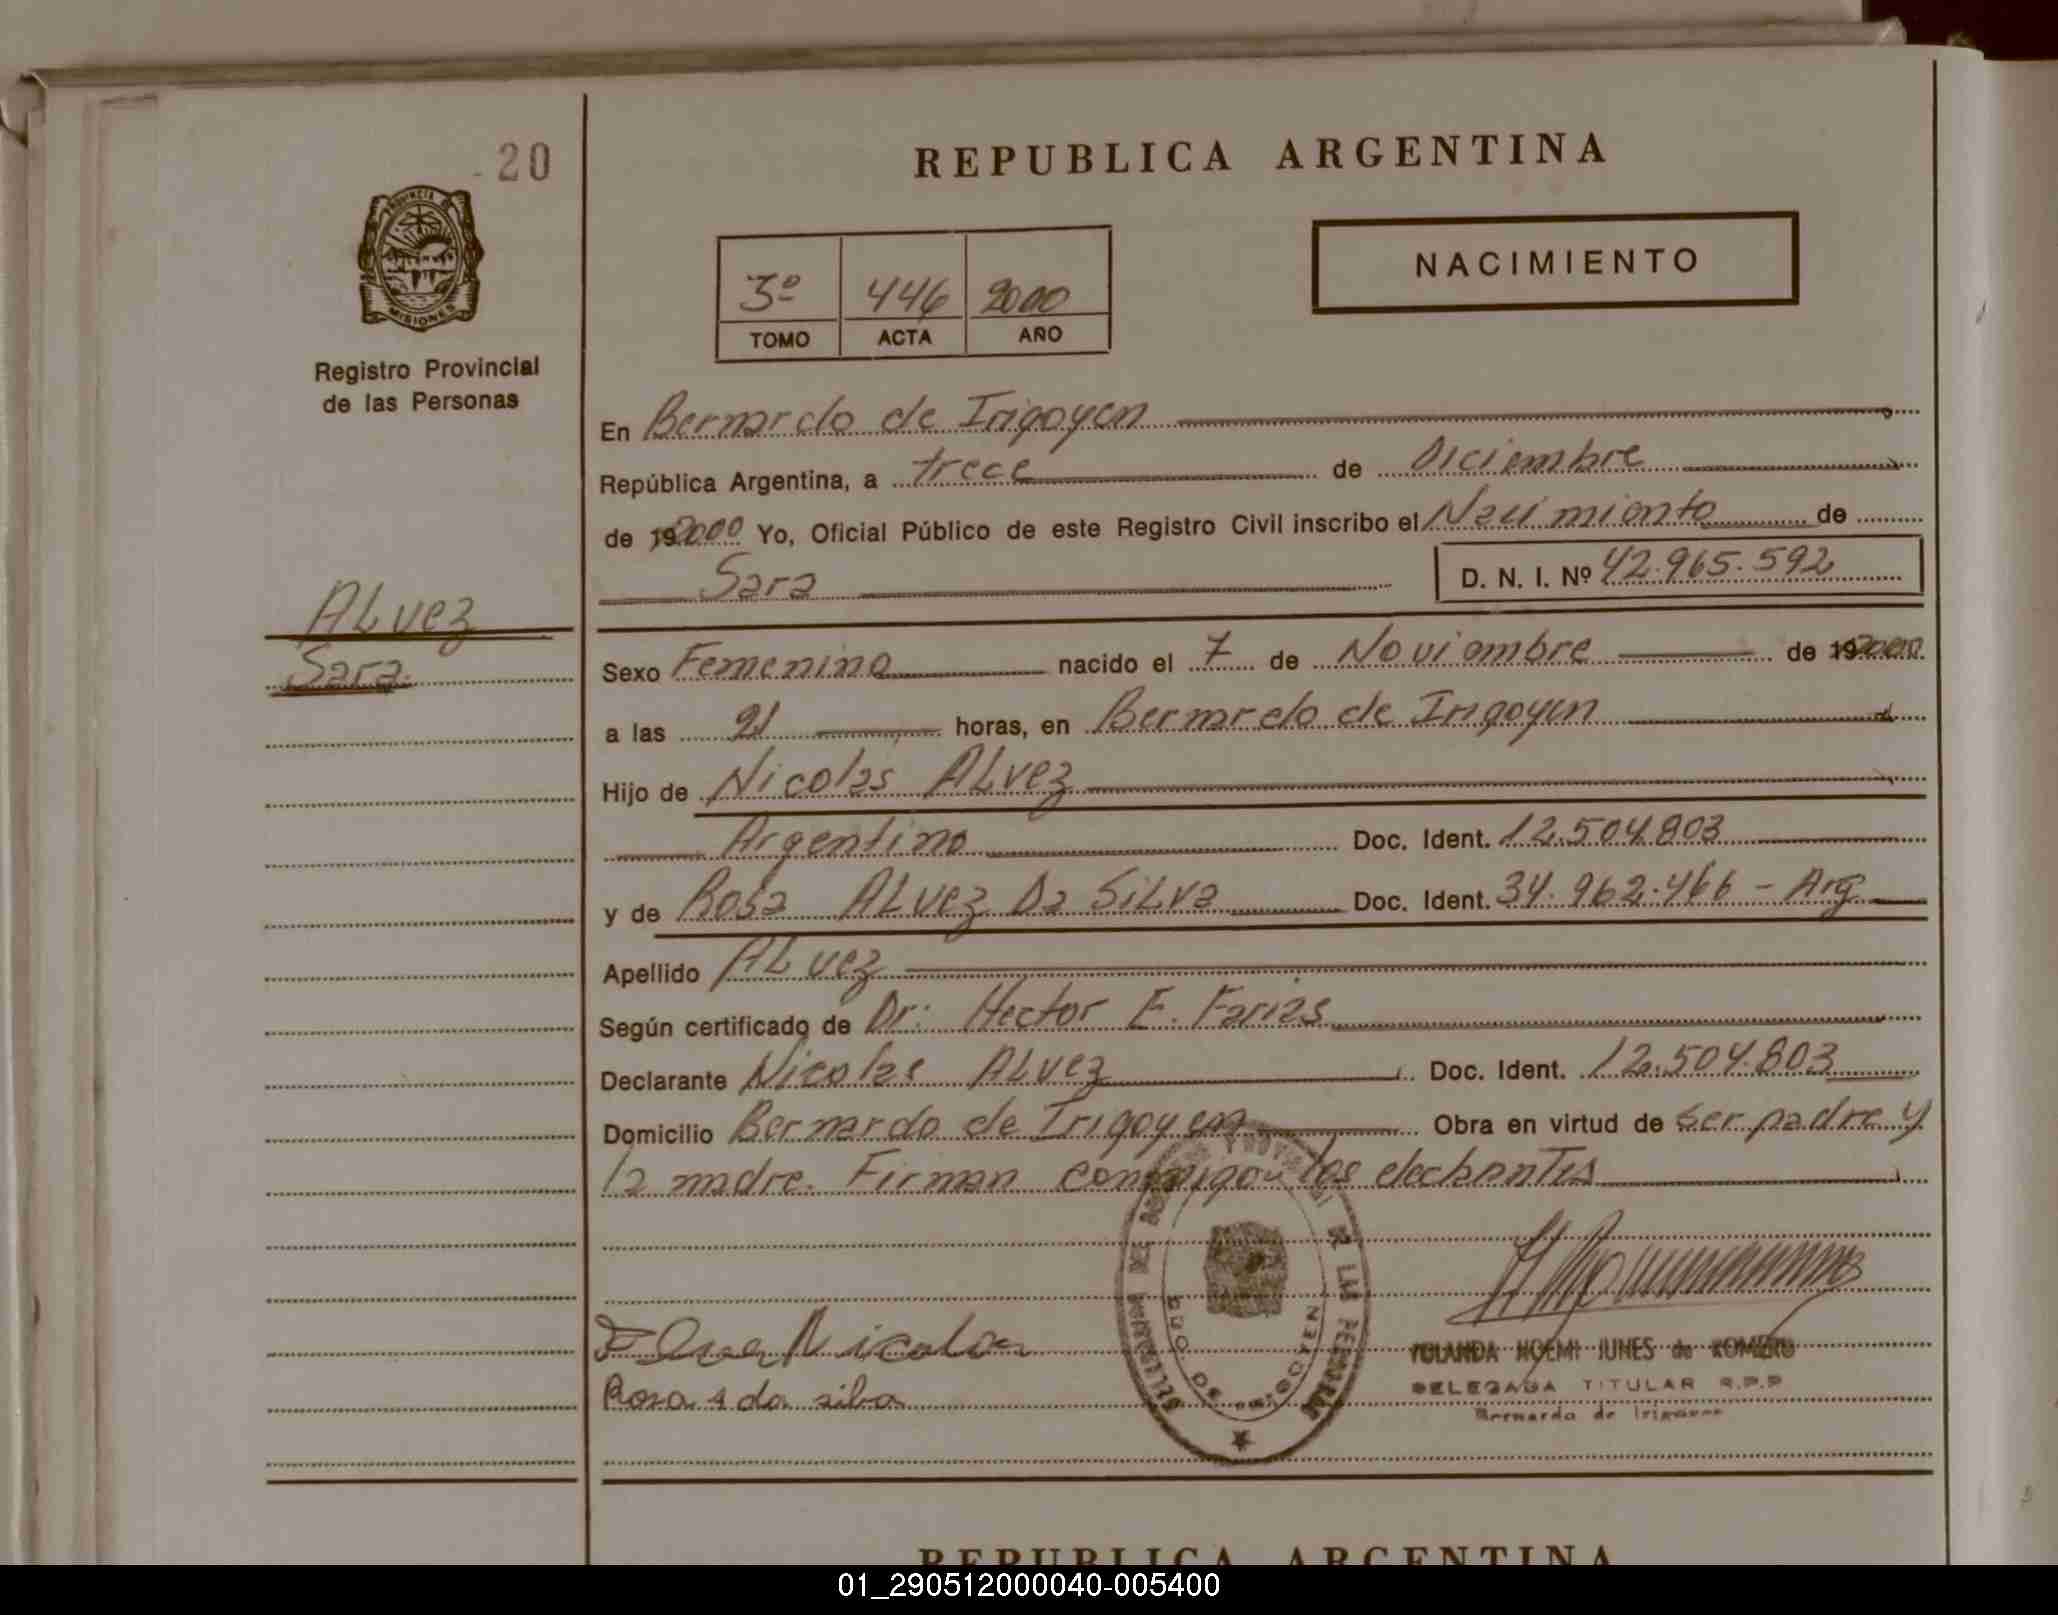 20
PROVINCIA DE
MISIONES
Registro Provincial
de las Personas
ALvez
Sara
REPUBLICA ARGENTINA
NACIMIENTO
3º 446 2000
TOMO ACTA AÑO
En Bernardo de Irigoyen
República Argentina, a trece de Diciembre
de 192000 Yo, Oficial Público de este Registro Civil inscribo el Nacimiento de
Sara D. N. I. Nº 42.965.592
Sexo Femenino nacido el 7 de Noviembre de 192000
a las 21 horas, en Bernardo de Irigoyen
Hijo de Nicolas ALvez
Argentino Doc. Ident. 12.504.803
y de Rosa ALvez Da SiLva Doc. Ident. 34.962.466 - Arg
Apellido ALvez
Según certificado de Dr: Hector E. Farias
Declarante Nicolas ALvez Doc. Ident. 12.504.803
Domicilio Bernardo de Irigoyen Obra en virtud de ser padre y
la madre. Firman conmigo los declarantes
Nicolas
Rosa a da silva
DE LAS PERSONAS
BDO. DE IRIGOYEN
YOLANDA NOEMI IUNES de ROMERO
DELEGADA TITULAR R.P.P
Bernardo de Irigoyen
REPUBLICA ARGENTINA
01_290512000040-005400